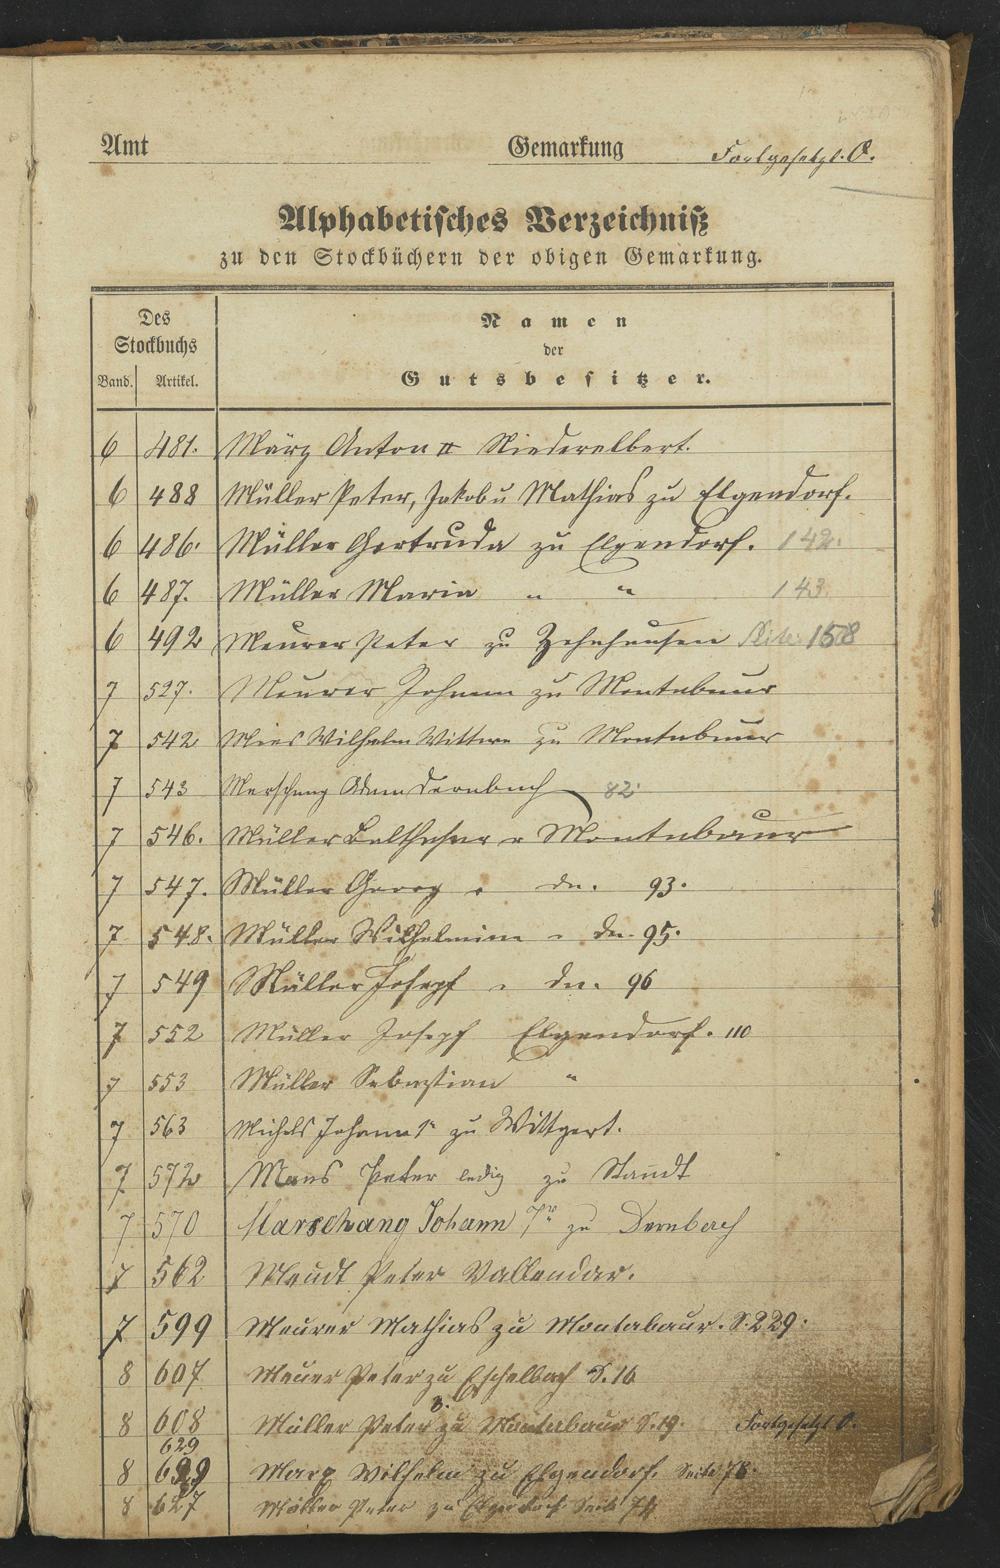 Amt
Gemarkung Fortgesetzt. O.
Alphabetisches Verzeichniß
zu den Stockbüchern der obigen Gemarkung.
Des Stockbuchs
Namen
der
Gutsbesitzer.
Band. Artikel.
6 481. März Anton II Niederelbert.
6 488 Müller Peter, Jakob u Mathias zu Elgendorf.
6 486. Müller Gertruda zu Elgendorf. 142.
6 487. Müller Maria " " 143.
6 492 Meurer Peter zu Zehnhausen Seite 158
7 527. Meurer Johann zu Montabaur
7 542 Mies Wilhelm Wittwe zu Montabaur
7 543 Merschang Adam Dernbach 82
7 546. Müller Balthasar Montabaur
7 547. Müller Georg " do. 93.
7 548. Müller Wilhelmine " do. 95.
7 549 Müller Josepf " do. 96
7 552 Müller Josepf Elgendorf. 110
7 553 Müller Sebastian "
7 563 Michels Johann zu Wittgert.
7 572 Mans Peter ledig zu Staudt
7 570 Marschang Johann zu Dernbach
7 562 Meudt Peter Vallendar.
7 599 Meurer Mathias zu Montabaur. S. 229.
8 607 Meuer Peter zu Eschelbach S. 16
8 608 Müller Peter 3. zu Montabaur S. 19. Fortgesetzt O.
8 629 März Wilhelm zu Elgendorf. Seite 78.
8 627 Müller Peter zu Elgendorf Seite 74